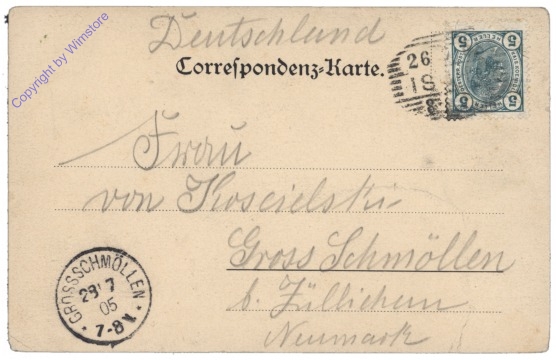 Copyright by Wimstore
Deutschland
Correspondenz-Karte.
5 5
26
IS
8
5 5
Frau
von Koscielski
Gross Schmöllen
b. Züllichau
Neumark
GROSSSCHMÖLLEN
28 7
05
7-8 V.